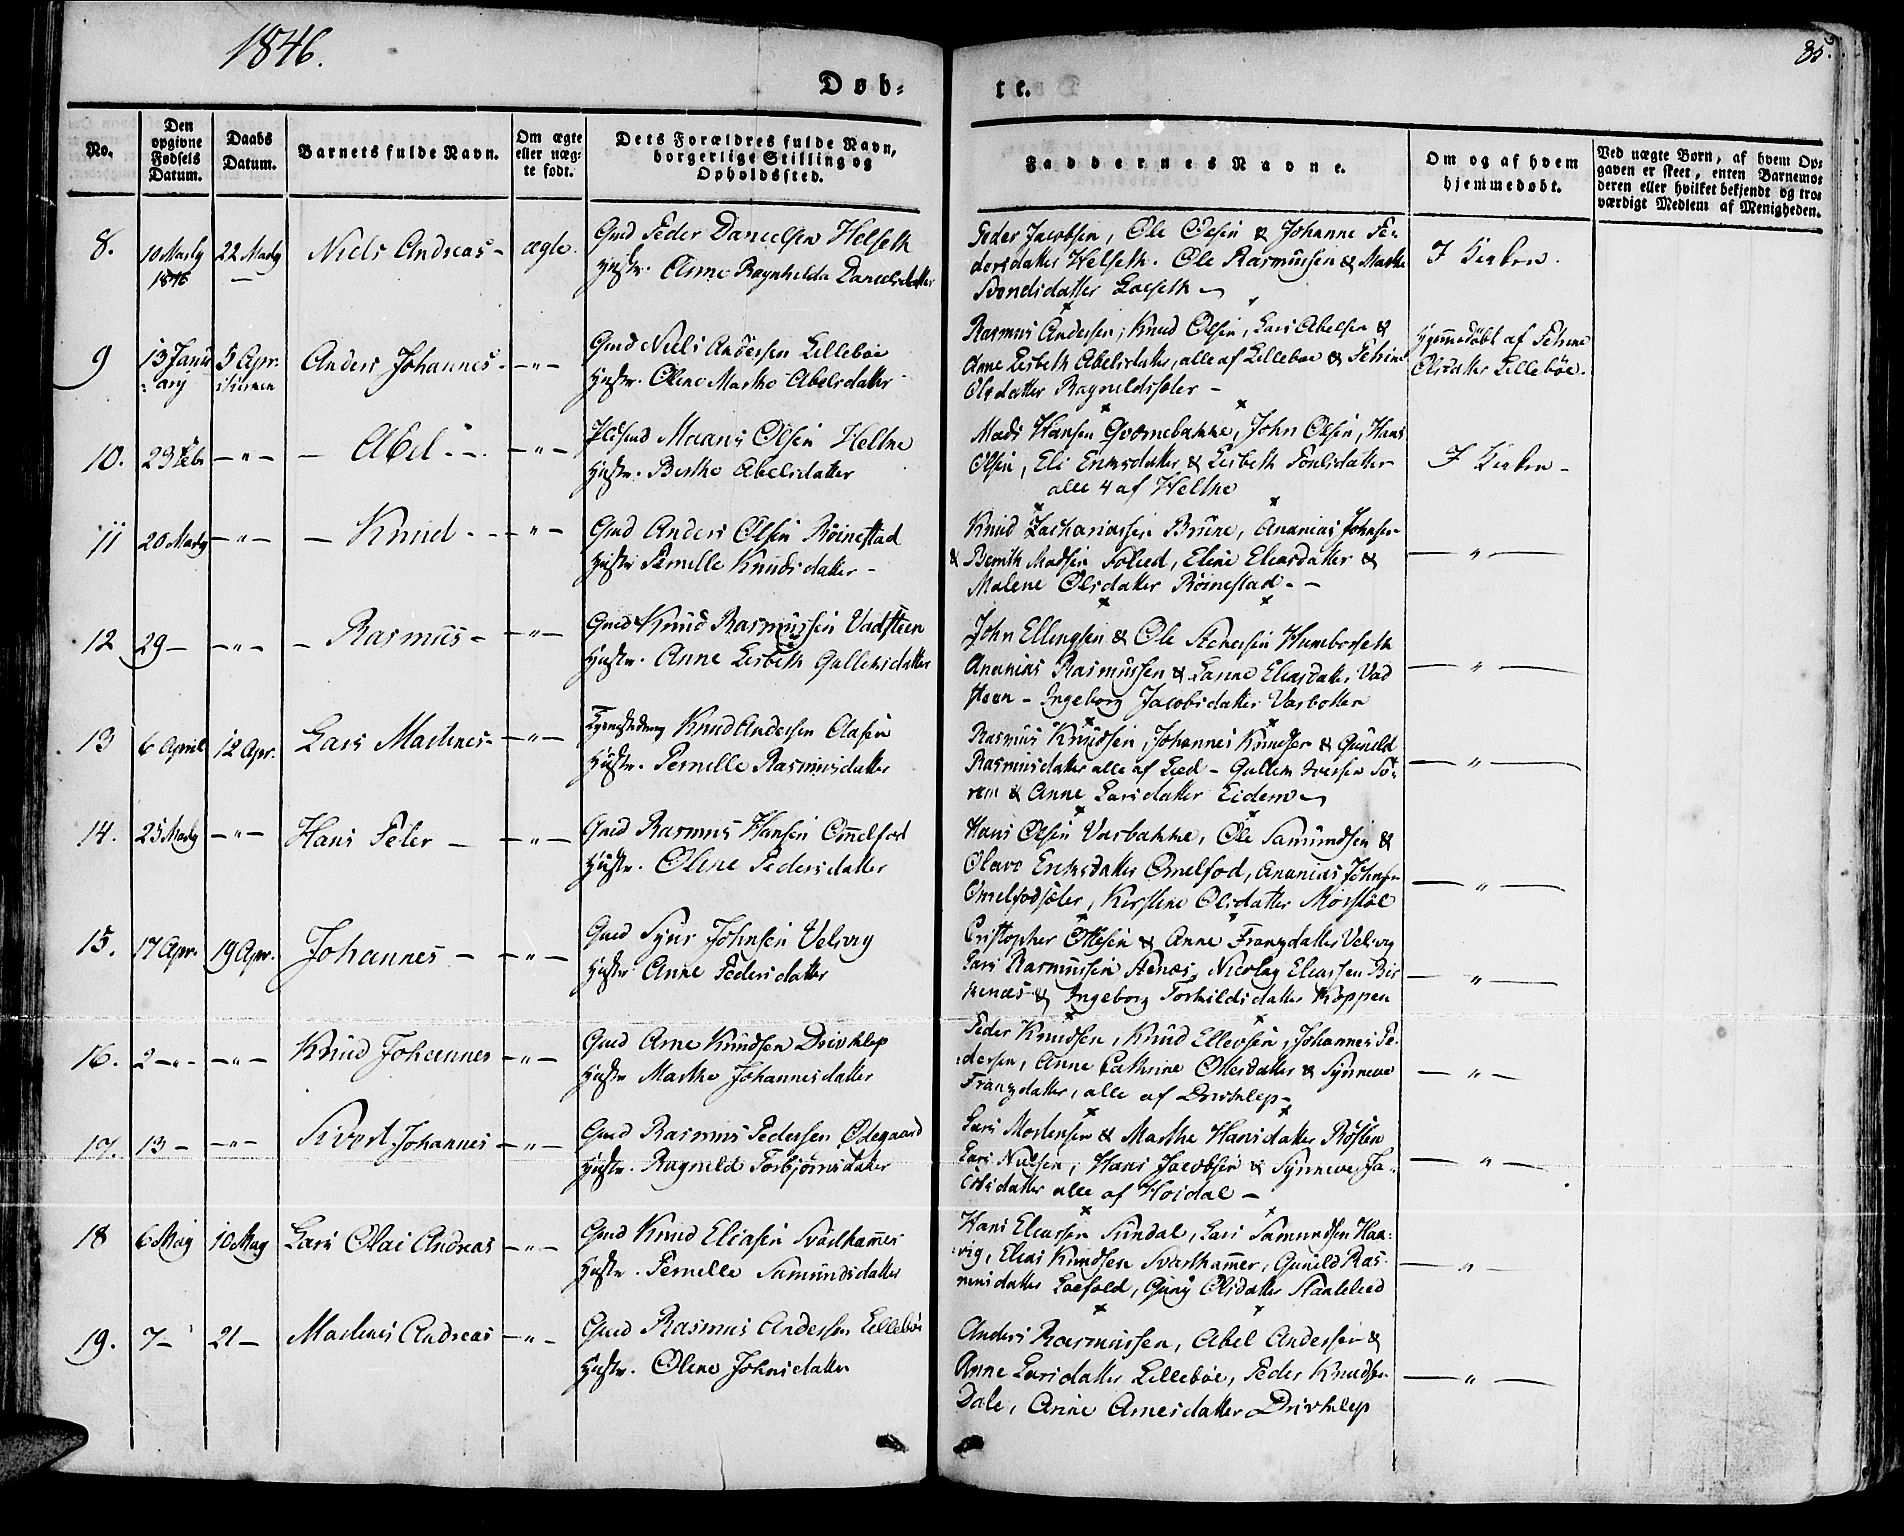 1846.
85.
Døb-
te.
No.
Den
opgivne
Fødsels
Datum.
Daabs
Datum.
Barnets fulde Navn.
Om ægte
eller uæg-
te født.
Dets Forældres fulde Navn,
borgerlige Stilling og
Opholdssted.
Faddernes Navne.
Om og af hvem
hjemmedøbt.
Ved uægte Børn, af hvem Op-
gaven er skeet, enten Barnemo-
deren eller hvilket bekjendt og tro-
værdigt Medlem af Menigheden.
8.
10 Marty
1846
22 Marty
—
Niels Andreas -
ægte.
Gmd Peder Danielsen Helseth
Hustr. Anne Ragnhilda Danielsdatter
Peder Jacobsen, Ole Olsen & Johanne Pe-
dersdatter Helseth. Ole Rasmussen & Marthe
Svendsdatter Løeseth
I Kirken.
9
13 Janu
ary
5 Apr.
Anders Johannes -
- " -
Gmd Niels Andersen Lillebøe
Hustr. Oline Marthe Abelsdatter
Rasmus Andersen, Knud Olsen, Lars Abelsen &
Anne Lisbeth Abelsdatter, alle af Lillebøe &
Olsdatter Ragnildsæter -
Hjemmedøbt af
Olsdatter Lillebøe.
10.
23 Febr
- " -
- Abel -
- " -
Maans Olsen Heltne
Hustr. Berthe Abelsdatter
Mads Hansen Qvernebakke, John Olsen, Hans
Olsen, Eli Eriksdatter & Lisbeth Poulsdatter
alle 4 af Heltne
I Kirken -
11
20 Marty
- " -
- Knud -
- " -
Gmd Anders Olsen Røinestad
Hustr Pernille Knudsdatter -
Knud Zachariassen Brune, Ananias Johnsen
& Bernth Madsen Folied, Eline Eliasdatter &
Malene Olsdatter Røinestad - -
- " -
12
29 -
- " -
- Rasmus -
- " -
Gmd Knud Rasmussen Vadsteen
Hustr. Anne Lisbeth Gulleksdatter
John Ellingsen & Ole Steensen Humborseth
Ananias Rasmussen & Hanne Eliasdatter Vad
steen - Ingeborg Jacobsdatter Varbotten
- " -
13
6 April
12 Apr.
Lars Martines -
- " -
Knud Andersen
Hustr. Pernille Rasmusdatter
Rasmus Knudsen, Johannes Knudsen & Gunild
Rasmusdatter alle af Lied - Gullik Iversen Sø-
rem & Anne Larsdatter Eidem
- " -
14.
25 Marty
- " -
Hans Peter -
- " -
Gmd Rasmus Hansen Omelfod
Hustr. Oline Pedersdatter
Hans Olsen Varbakke, Ole Samundsen &
Olave Eriksdatter Omelfod, Ananias Johnsen
Omelfodsæter, Kirstine Olsdatter Morstøl
- " -
15.
17 Apr.
19 Apr.
Johannes -
- " -
Gmd Syur Johnsen Velsvig
Hustr Anne Pedersdatter
Cristopher Ottesen & Anne Franzdatter Velsvig
Lars Rasmussen Stenæs, Nicolay Eliassen Bir
kenæs & Ingeborg Torkildsdatter Koppen
- " -
16.
2 - " -
- " -
Knud Johannes
- " -
Gmd Arne Knudsen Drivklep
Hustr Marthe Johannesdatter
Peder Knudsen, Knud Ellevsen, Johannes Pe-
dersen, Anne Cathrine Ottesdatter & Synneve
Franzdatter, alle af Drivklep -
- " -
17.
13 -
- " -
Sivert Johannes
- " -
Gmd Rasmus Pedersen Ødegaard
Hustr. Ragnild Torbjørnsdatter
Lars Mortensen & Marthe Hansdatter Røsten
Lars Nilsen, Hans Jacobsen & Synneve Ja-
cobsdatter alle af Hoidal -
- " -
18
6 Maj
10 Maj
Lars Olai Andreas
- " -
Gmd Knud Eliasen Svartkammer
Hustr. Pernille Samundsdatter
Hans Eliassen Sundal, Lars Samundsen Haa-
vig, Elias Knudsen Svartkammer, Gunild Ras-
musdatter Løefold, Guny Olsdatter
- " -
19.
7 -
21 -
Martines Andreas
- " -
Gmd Rasmus Andersen Lillebøe
Hustr. Oline Johnsdatter
Anders Rasmussen, Abel Andersen &
Anne Larsdatter Lillebøe, Peder Knudsen
Dale, Anne Arnesdatter Drivklep
- " -